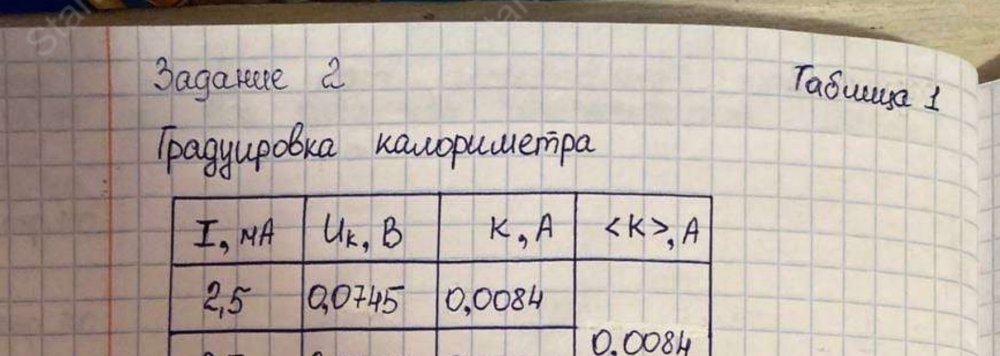 Задание 2
Таблица 1
Градуировка калориметра
I, мА Uк, В К, А <К>, А
2,5 0,0745 0,0084
0,0084